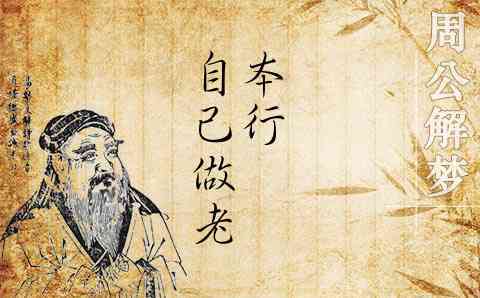 周公解梦
自己做老
本行